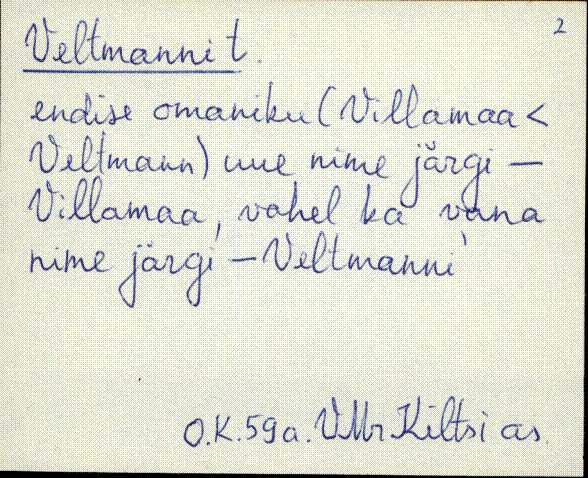 2
Veltmanni t.
endise omaniku (Villamaa <
Veltmann) uue nime järgi —
Villamaa, vahel ka vana
nime järgi — Veltmanni
O.K. 59 a. VMr Kiltsi as.